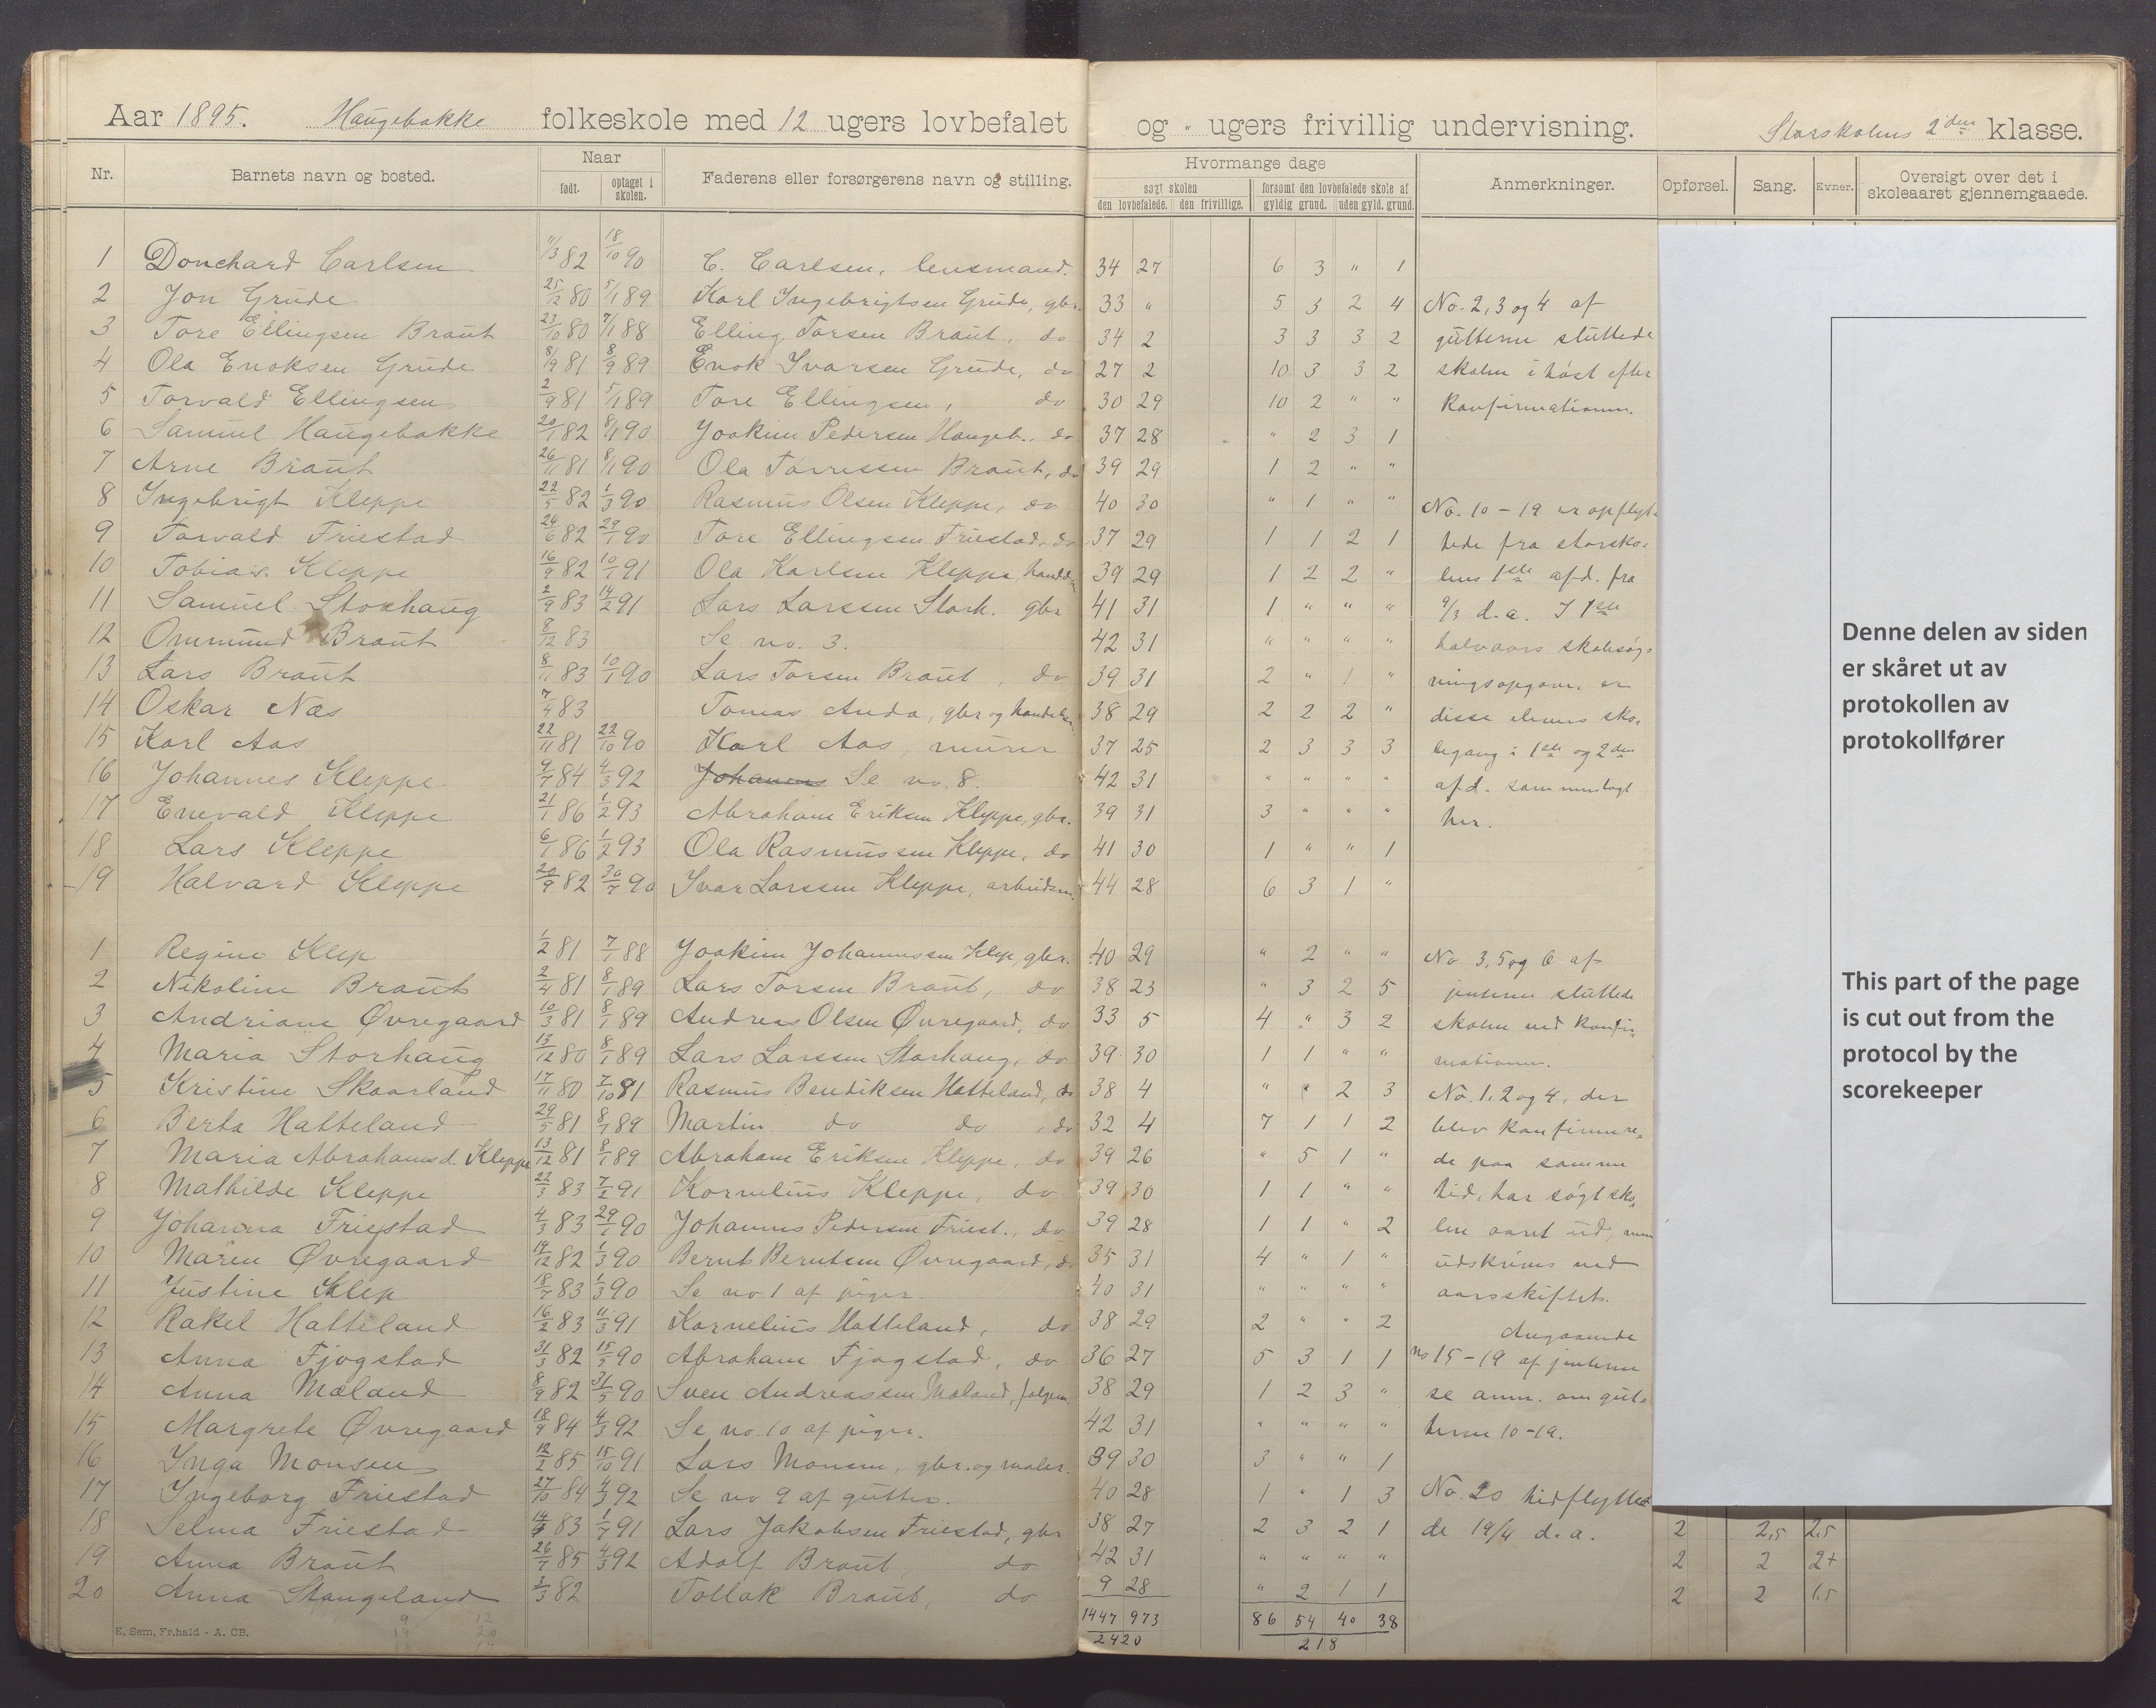 Aar 1895. Haugebakke folkeskole med 12 ugers lovbefalet og " ugers frivillig undervisning. Storskolens 2den klasse.
Nr. Barnets navn og bosted. Naar født. optaget i skolen. Faderens eller forsørgerens navn og stilling. Hvormange dage søgt skolen den lovbefalede. den frivillige. forsømt den lovbefalede skole af gyldig grund. uden gyld. grund. Anmerkninger. Opførsel. Sang. Evner. Oversigt over det i skoleaaret gjennemgaaede.
1 Donchard Carlsen 11/3 82 18/10 90 C. Carlsen, lensmand. 34 27 6 3 " 1
2 Jon Grude 25/12 80 5/1 89 Karl Ingebrigtsen Grude, gbr. 33 " 5 3 2 4 No. 2, 3 og 4 af
3 Tore Ellingsen Braut 23/10 80 7/1 88 Elling Torsen Braut, do 34 2 3 3 3 2 gutterne sluttede
4 Ola Enoksen Grude 8/9 81 8/9 89 Enok Ivarsen Grude, do 27 2 10 3 3 2 skolen i høst efter
5 Torvald Ellingsen 2/9 81 5/1 89 Tore Ellingsen, do 30 29 10 2 " " Konfirmationen.
6 Samuel Haugebakke 20/1 82 8/1 90 Joakim Pedersen Haugeb., do 37 28 " 2 3 1
7 Arne Braut 26/11 81 8/1 90 Ola Torressen Braut, do 39 29 1 2 " "
8 Ingebrigt Kleppe 22/5 82 1/3 90 Rasmus Olsen Kleppe, do 40 30 " 1 " " No. 10 - 19 er opflyt-
9 Torvald Friestad 24/6 82 29/1 90 Tore Ellingsen Friestad, do 37 29 1 1 2 1 tede fra storsko-
10 Tobias Kleppe 16/9 82 10/1 91 Ola Karlsen Kleppe, handelsm 39 29 1 2 2 " lens 1ste afd. fra
11 Samuel Storhaug 2/9 83 14/2 91 Lars Larssen Storh. gbr 41 31 1 " " " 9/3 d.a. I 1ste
12 Ommund Braut 8/12 83 Se no. 3. 42 31 " " " " halvaars skolesøg-
13 Lars Braut 8/11 83 10/1 90 Lars Torsen Braut, do 39 31 2 " 1 " ningsopgave er
14 Oskar Næs 7/4 83 Tomas Anda, gbr og handelsm 38 29 2 2 2 " disse elevers sko-
15 Karl Aas 22/11 81 22/10 90 Karl Aas, murer 37 25 2 3 3 3 legang i 1ste og 2den
16 Johannes Kleppe 9/7 84 4/3 92 Johanens Se no. 8. 42 31 " " " " afd. sammenlagt
17 Enevald Kleppe 21/1 86 1/2 93 Abraham Eriksen Kleppe, gbr. 39 31 3 " " " her.
18 Lars Kleppe 6/1 86 1/2 93 Ola Rasmussen Kleppe, do 41 30 1 " " 1
19 Halvard Kleppe 20/9 82 30/7 90 Ivar Larssen Kleppe, arbeidsm. 44 28 6 3 1 "
1 Regine Klep 1/2 81 7/1 88 Joakim Johannessen Klep, gbr. 40 29 " 2 " " No 3, 5 og 6 af
2 Nikoline Braut 2/4 81 8/1 89 Lars Torsen Braut, do 38 23 " 3 2 5 jenterne sluttede
3 Andriane Øvregaard 10/3 81 8/1 89 Andreas Olsen Øvregaard, do 33 5 4 " 3 2 skolen ved Konfir-
4 Maria Storhaug 13/12 80 8/1 89 Lars Larssen Storhaug, do 39 30 1 1 " " mationen.
5 Kristine Skaarland 17/11 80 7/10 81 Rasmus Bendiksen Hatteland, do 38 4 " " 2 3 No. 1, 2 og 4, der
6 Berta Hatteland 29/5 81 8/1 89 Martin do do, do 32 4 7 1 1 2 blev Konfirmere-
7 Maria Abrahamsd. Kleppe 13/12 81 8/1 89 Abraham Eriksen Kleppe, do 39 26 " 5 1 " de paa samme
8 Mathilde Kleppe 22/3 83 7/2 91 Kornelius Kleppe, do 39 30 1 1 " " tid, har søgt sko-
9 Johanna Friestad 4/3 83 29/1 90 Johannes Pedersen Friest., do 39 28 1 1 " 2 len aaret ud, men
10 Maren Øvregaard 14/12 82 1/3 90 Bernt Berntsen Øvregaard, do 35 31 4 1 " udskrives ved
11 Justine Klep 18/7 83 1/3 90 Se no. 1 af piger. 40 31 " " " " aarsskiftet.
12 Rakel Hatteland 16/2 83 11/3 91 Kornelius Hatteland, do 38 29 2 " " 2 Angaaende
13 Anna Fjogstad 31/3 82 15/5 90 Abraham Fjogstad, do 36 27 5 3 1 1 no 15 - 19 af jenterne
14 Anna Mæland 8/9 82 31/5 90 Sven Andreassen Mæland, 38 29 1 2 3 " se anm. om gut-
15 Margrete Øvregaard 18/9 84 4/3 92 Se no. 10 af piger. 42 31 " " " " terne 10-19.
16 Inga Monsen 12/2 85 15/10 91 Lars Monsen, gbr. og maler. 39 30 3 " " 1
17 Ingeborg Friestad 27/10 84 4/3 92 Se no 9 af gutter. 40 28 1 " 1 3 No. 20 tidflytte
18 Selma Friestad 14/4 83 1/7 91 Lars Jakobsen Friestad, gbr 38 27 2 3 2 1 de 19/4 d.a. 2 2,5 2,5
19 Anna Braut 26/7 85 4/3 92 Adolf Braut, do 42 31 " " " " 2 2 2+
20 Anna Stangeland 3/3 82 Tollak Braut, do 9 28 " 2 1 1 2 2 1,5
1447 973 86 54 40 38
2420 218
E. Sem, Fr.hald - A. CB.
Denne delen av siden
er skåret ut av
protokollen av
protokollfører
This part of the page
is cut out from the
protocol by the
scorekeeper